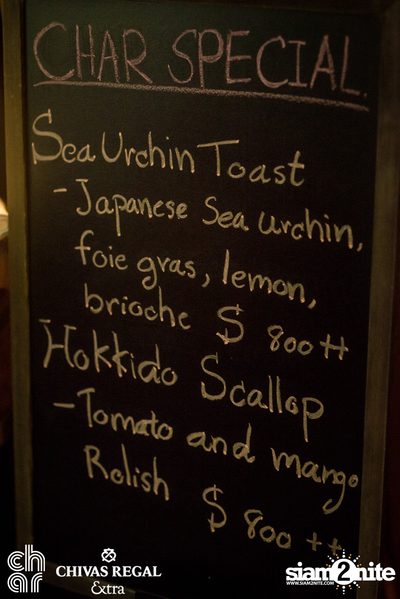 CHAR SPECIAL.
Sea Urchin Toast
- Japanese Sea urchin,
foie gras, lemon,
brioche $ 800++
Hokkido Scallop
- Tomato and mango
Rolish $ 800 ++
char
CHIVAS REGAL
Extra
siam2nite
WWW.SIAM2NITE.COM